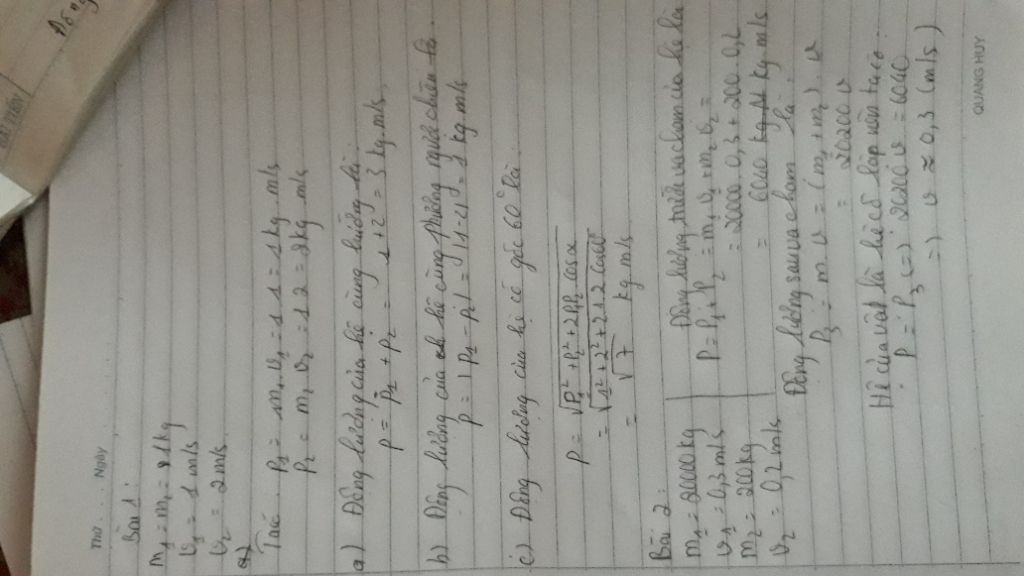 Thứ.... Ngày
Bài 1:
m1 = m2 = 1kg
v1 = 1 m/s
v2 = 2m/s
a)
Ta có: P1 = m1.v1 = 1.1 = 1kg.m/s
P2 = m2.v2 = 1.2 = 2kg.m/s
a) Động lượng của hệ cùng hướng là:
P = P1 + P2 = 1+2 = 3 kg.m/s
b) Động lượng của hệ cùng phương ngược chiều là
P = |P1 - P2| = |1-2| = 1 kg.m/s
c) Động lượng của hệ có góc 60° là:
P = √P1² + P2² + 2P1P2 cosα
= √1² + 2² + 2.1.2.cos60°
= √7 kg.m/s
Bài 2:
m1 = 20000kg
v1 = 0,3m/s
m2 = 200kg
v2 = 0,2m/s
Động lượng trước va chạm của hệ là
P = P1 + P2 = m1.v1 + m2.v2 =
= 20000.0,3 + 200.0,2
= 6040 kg.m/s
Động lượng sau va chạm là
P3 = m.v = (m1 + m2).v
= 20200v
Hệ của vật là hệ cô lập nên ta có
P = P3 <=> 20200v = 6040
=> v ≈ 0,3 (m/s)
QUANG HUY